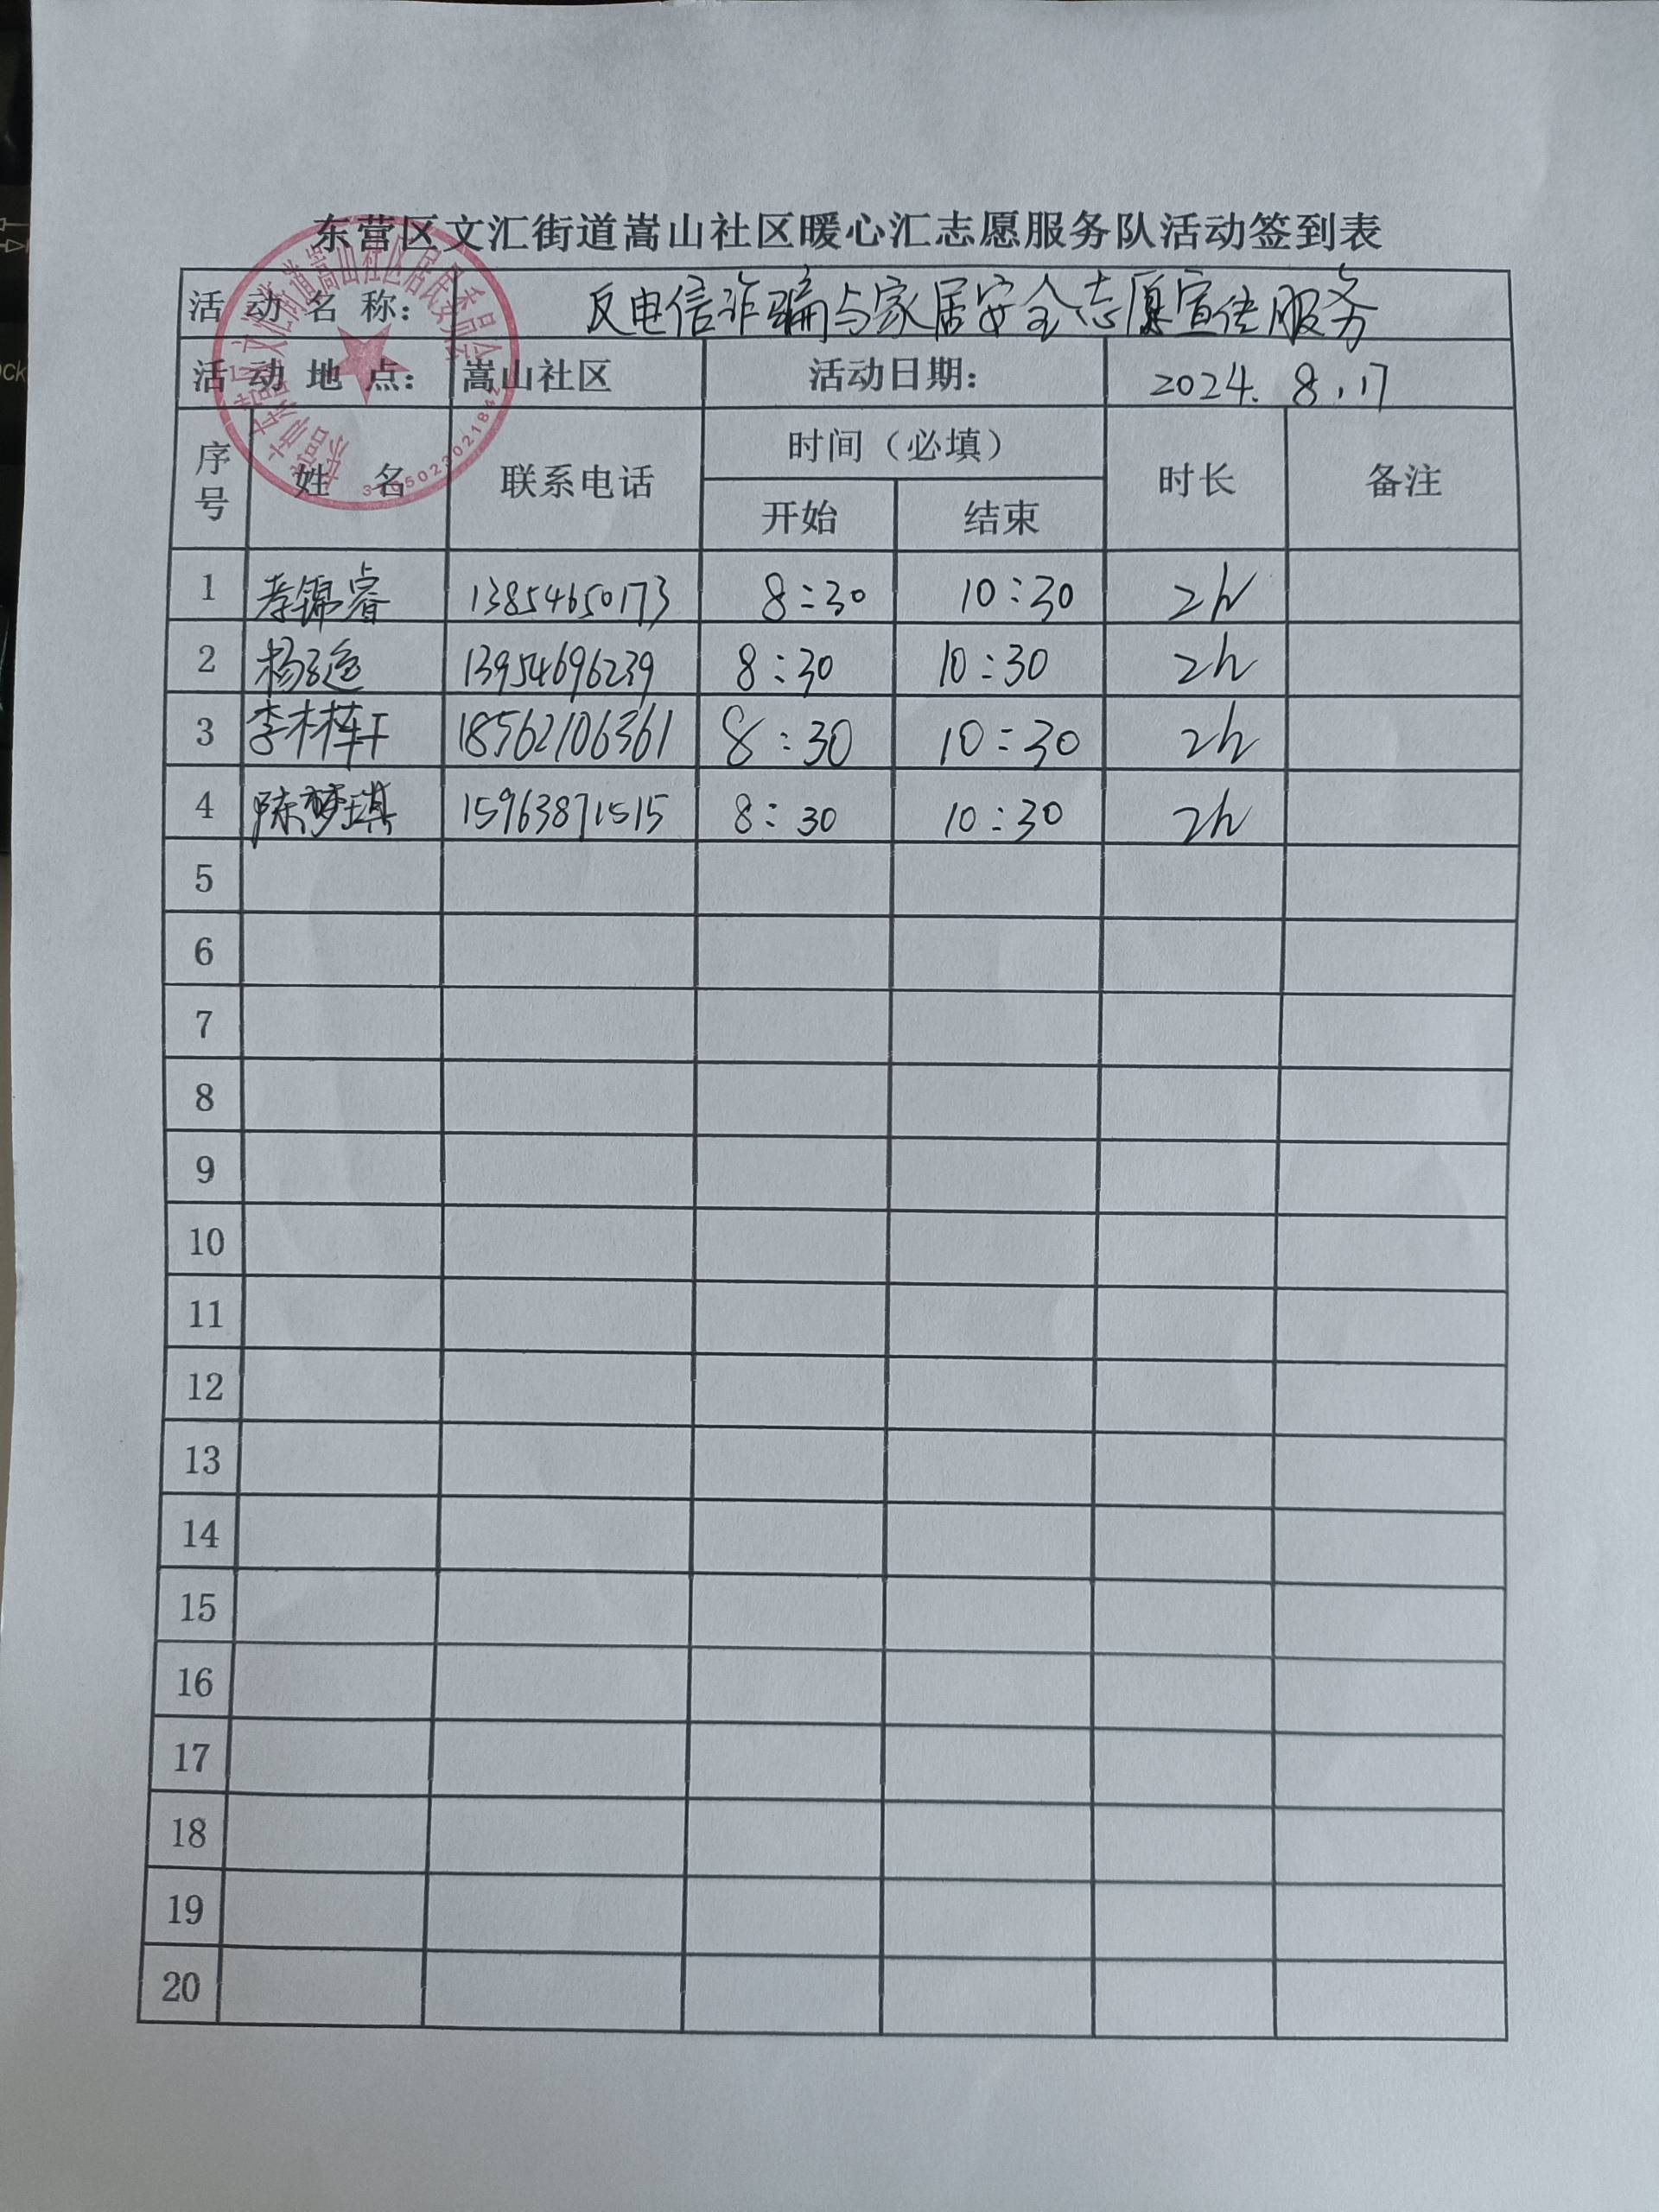 东营区文汇街道嵩山社区暖心汇志愿服务队活动签到表
活动名称： 反电信诈骗与家居安全志愿宣传服务
活动地点： 嵩山社区 活动日期： 2024.8.17
序号 姓名 联系电话 时间（必填） 时长 备注
开始 结束
1 李锦睿 13854650173 8:30 10:30 2h
2 杨 13954696239 8:30 10:30 2h
3 李林轩 18562106361 8:30 10:30 2h
4 陈梦琪 15963871515 8:30 10:30 2h
5
6
7
8
9
10
11
12
13
14
15
16
17
18
19
20